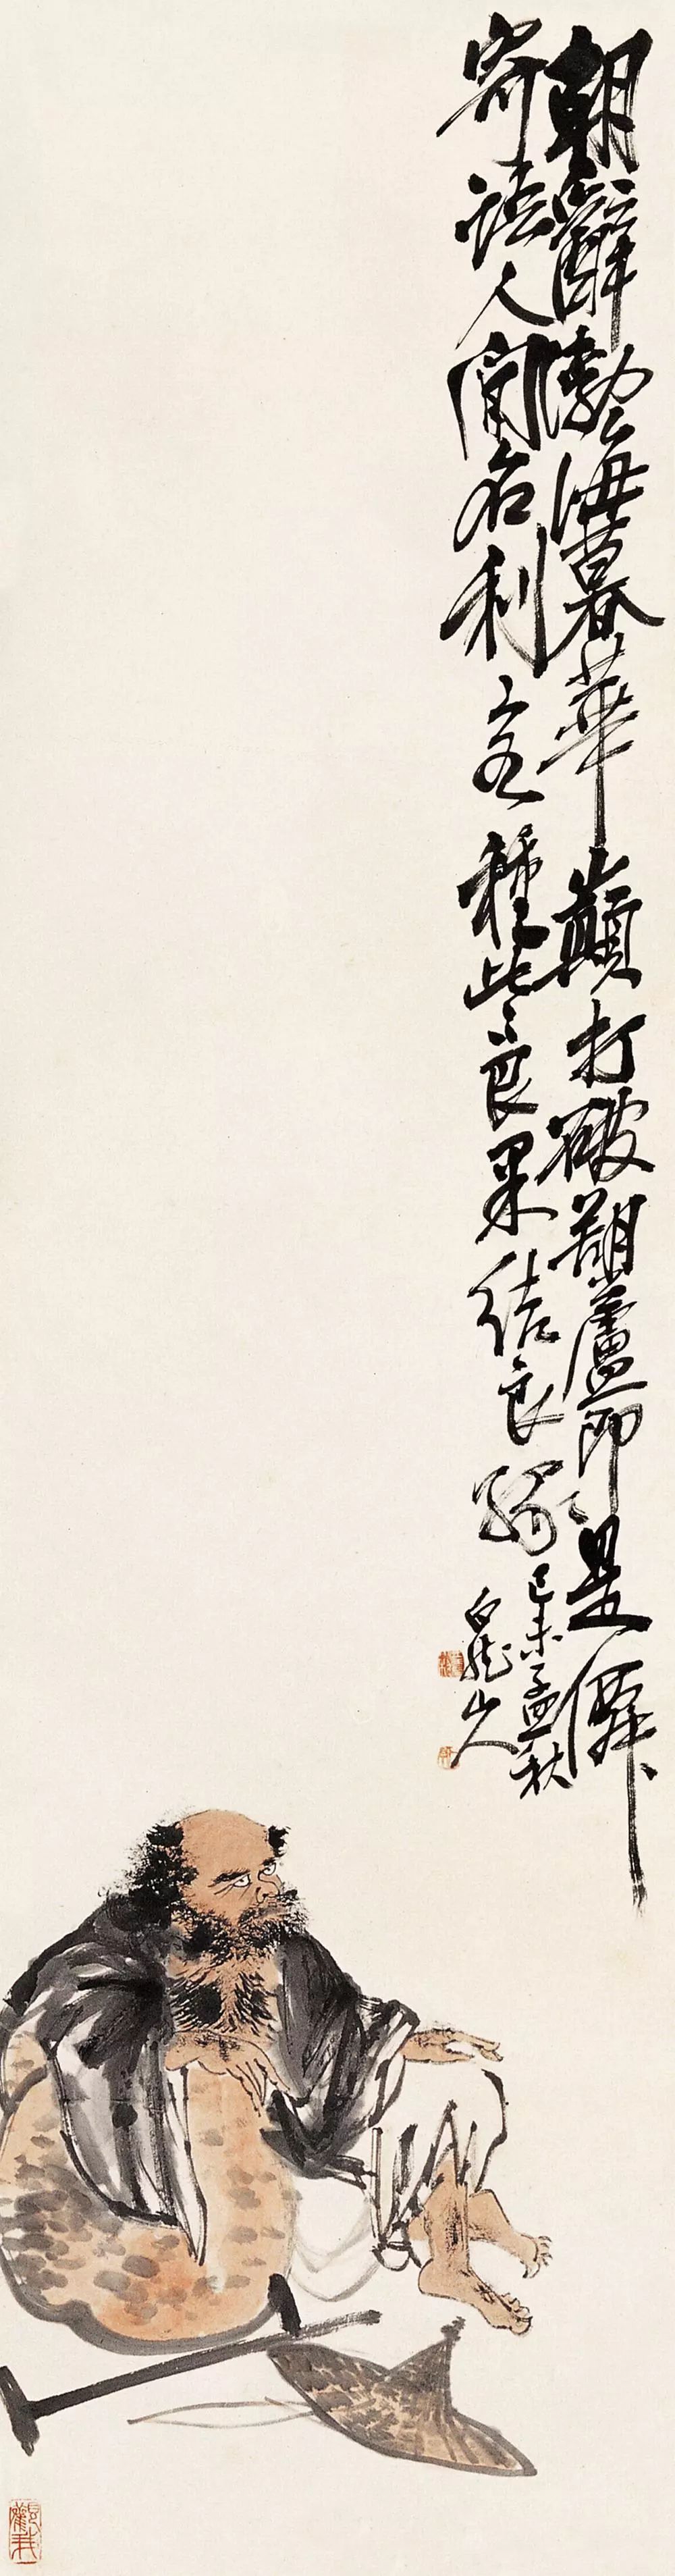 朝辭渤海暮華巔打破葫蘆即是僊
寄語人間名利客種此良果結良緣
己未孟秋
白龍山人